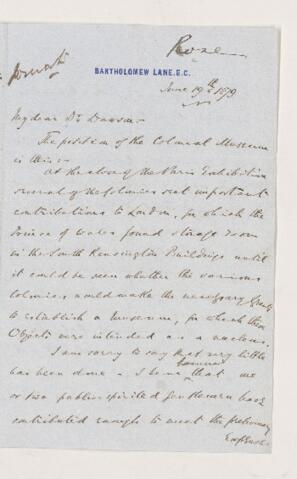 Roze
Private
BARTHOLOMEW LANE. E.C.
June 19th 1879
My dear Dr Dawson
The position of the Colonial Museum
is this -
At the close of the Paris Exhibition
several of the Colonies sent important
contributions to London, for which the
Prince of Wales found storage room
in the South Kensington Buildings until
it could be seen whether the various
Colonies would make the necessary grants
to establish a Museum, for which these
Objects were intended as a nucleus.
I am sorry to say that very little
has been done - I have learned that one
or two public spirited gentlemen have
contributed enough to meet the preliminary
Expenses